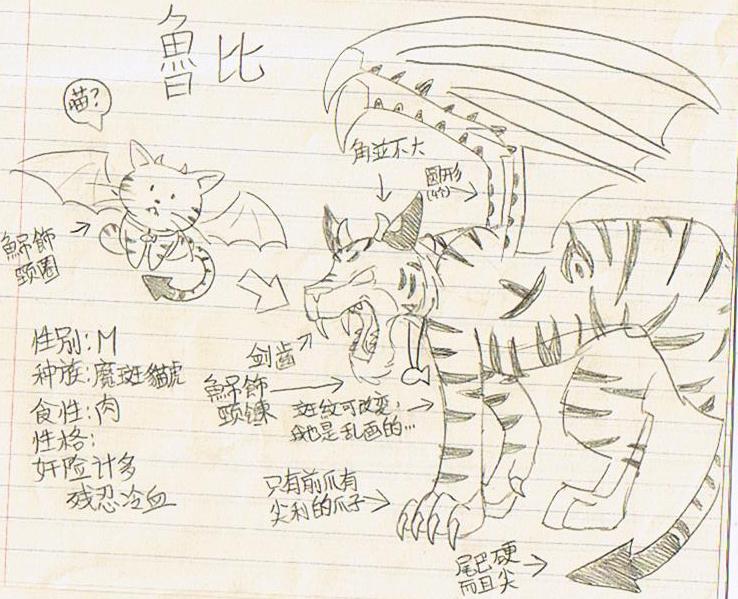 魯比
喵?
角並不大
圆形
(4个)
魚吊飾
頸圈
性别:M
种族:魔斑貓虎
食性:肉
性格:
奸险计多
残忍冷血
剑齿
魚吊飾
頸鍊
斑纹可改变,
我也是乱画的…
只有前爪有
尖利的爪子
尾巴硬
而且尖